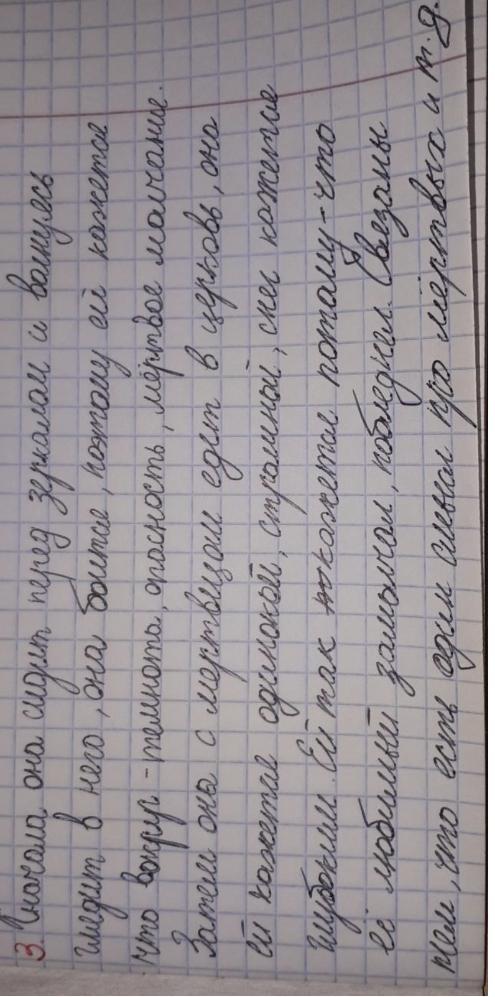 3. Вначале она сидит перед зеркалом и волнуясь
глядит в него, она боится, поэтому ей кажется
что вокруг - темнота, опасность, мёртвое молчание.
Затем она с мертвецом едет в церковь, она
ей кажется одинокой, странной, снег кажется
глубоким. Ей так кажется потому-что
её любимый замолчал, побледнел. Связаны
тем, что есть один смысл про мёртвых и т.д.